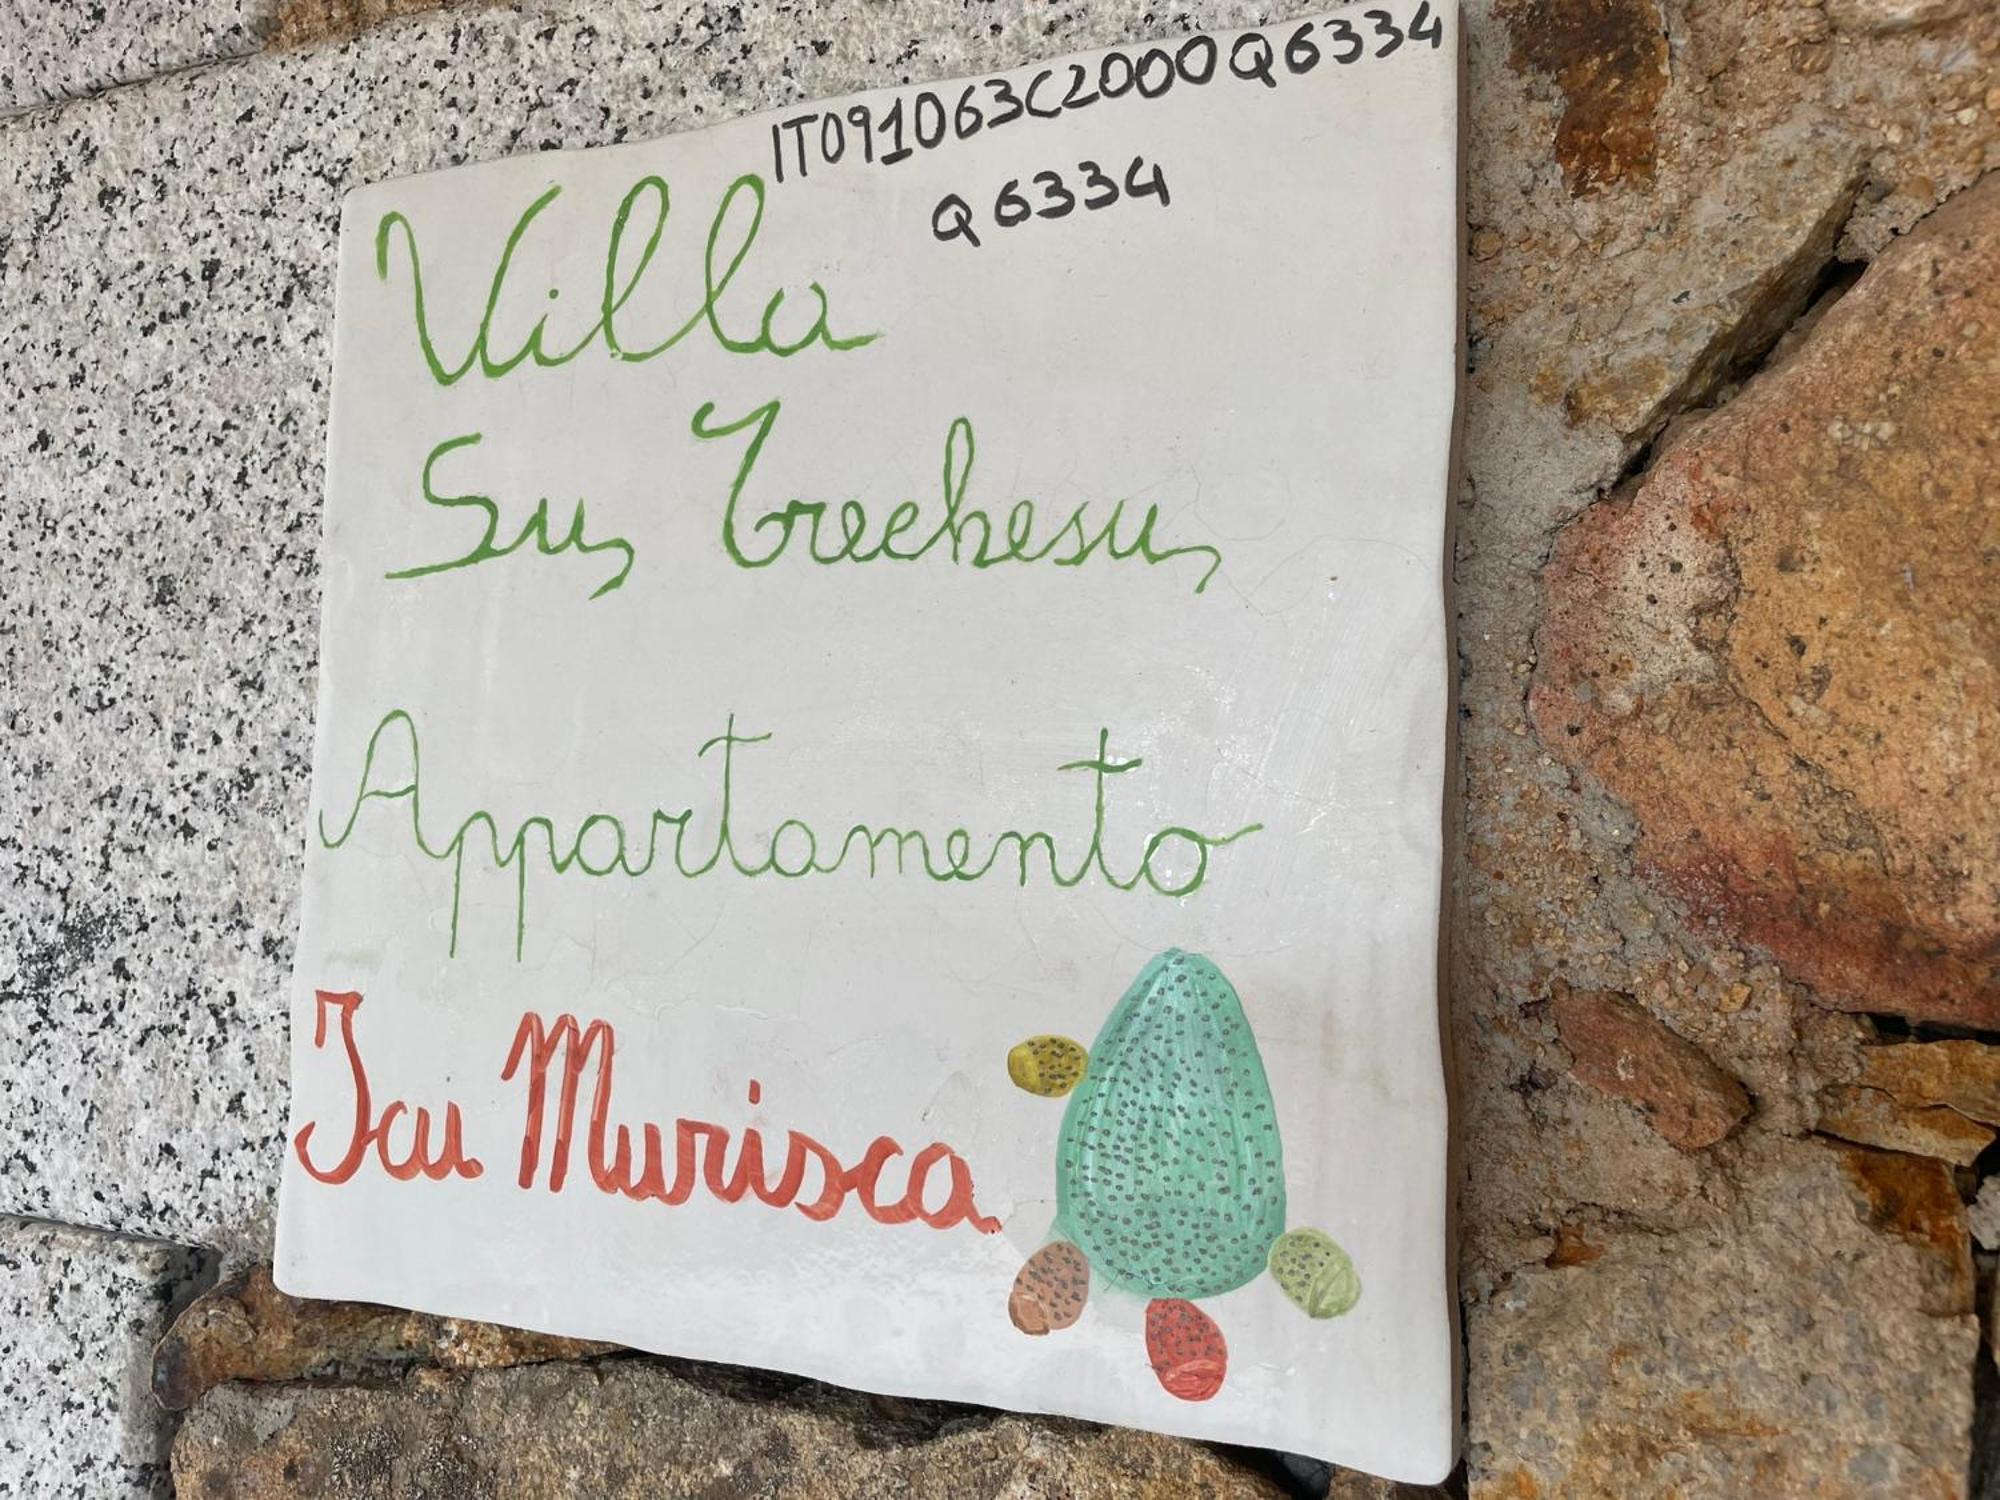 IT091063C2000Q6334
Q6334
Villa
Su Trechesu
Appartamento
Icu Murisca